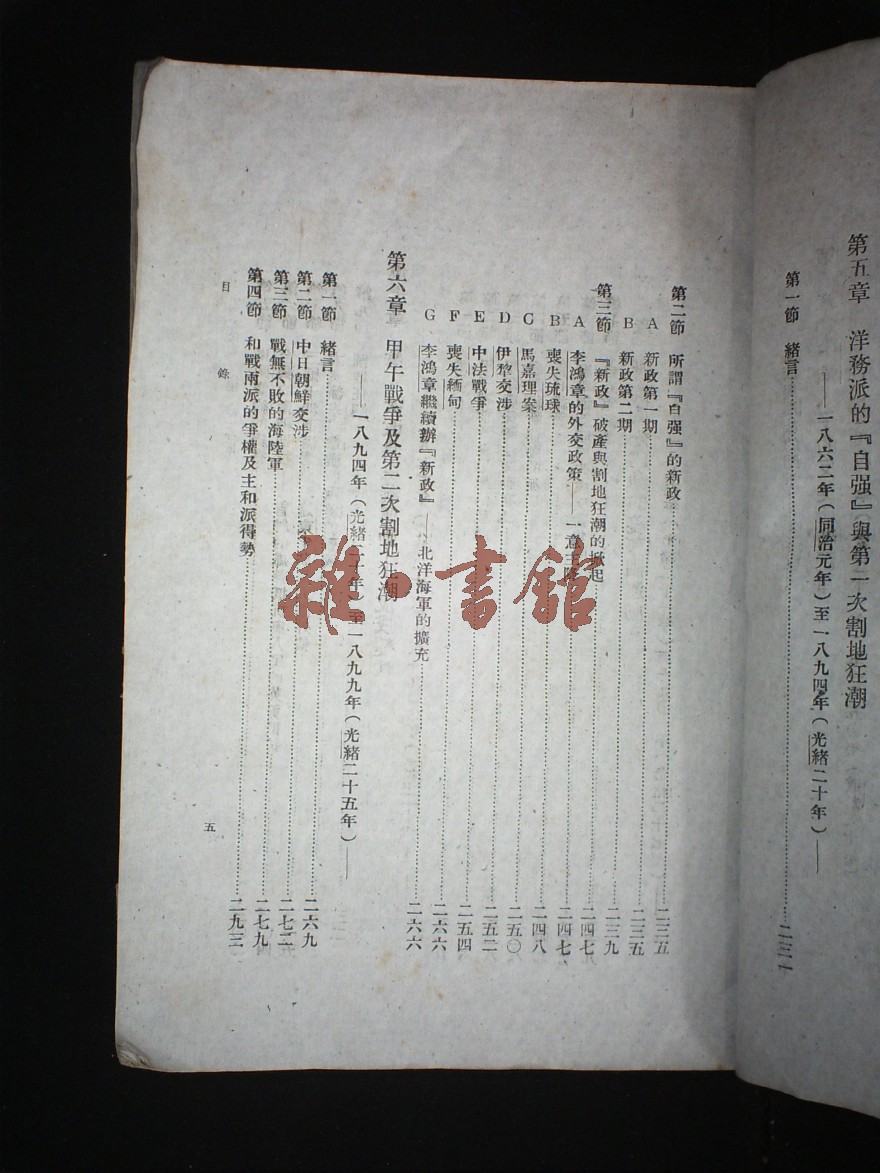 第五章　洋務派的『自强』與第一次割地狂潮
——一八六二年（同治元年）至一八九四年（光緒二十年）——
第一節　緒言……二三一
第二節　所謂『自强』的新政……二三五
A　新政第一期……二三五
B　新政第二期……二三九
第三節　『新政』破產與割地狂潮的掀起……二四七
A　李鴻章的外交政策——一意主……二四七
B　喪失琉球……二四八
C　馬嘉理案……二五〇
D　伊犂交涉……二五二
E　中法戰爭……二五四
F　喪失緬甸……二六六
G　李鴻章繼續辦『新政』——北洋海軍的擴充……二六六
第六章　甲午戰爭及第二次割地狂潮
——一八九四年（光緒二十年）至一八九九年（光緒二十五年）——
第一節　緒言……二六九
第二節　中日朝鮮交涉……二七二
第三節　戰無不敗的海陸軍……二七九
第四節　和戰兩派的爭權及主和派得勢……二九三
目錄
五
雜·書館